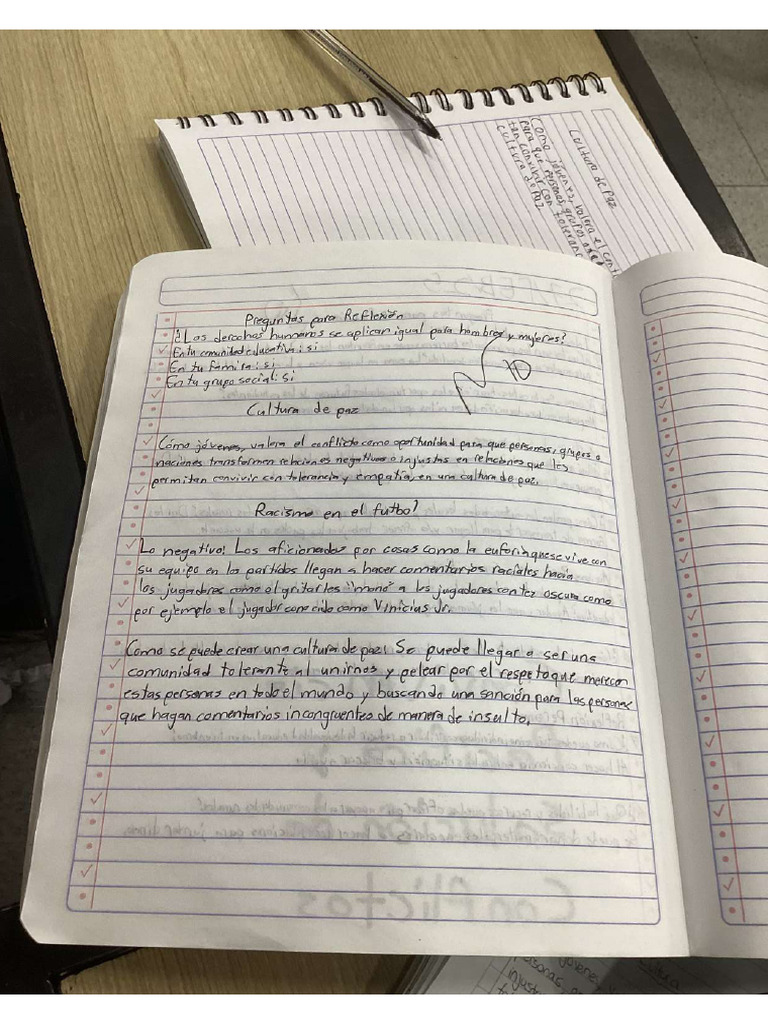 Cultura de paz
Como jóvenes, valera el conf
para que personas, grupos o
tan convivir con toleran
cultura de paz
Preguntas para Reflexión
¿Los derechos humanos se aplican igual para hombres y mujeres?
En tu comunidad educativa: si
En tu familia: si
En tu grupo social: Si
10
Cultura de paz
Cómo jóvenes, valera el conflicto como oportunidad para que personas, grupos o
naciones transformen relaciones negativas o injustas en relaciones que les
permitan convivir con tolerancia y empatía, en una cultura de paz.
Racismo en el futbol
Lo negativo: Los aficionados por cosas como la euforia que se vive con
su equipo en los partidos llegan a hacer comentarios raciales hacia
los jugadores como al gritarles "mono" a los jugadores con tez oscura como
por ejemplo el jugador conocido como Vinicius Jr.
Como se puede crear una cultura de paz: Se puede llegar a ser una
comunidad tolerante al unirnos y pelear por el respeto que merecen
estas personas en todo el mundo y buscando una sanción para las personas
que hagan comentarios incongruentes de manera de insulto.
Conflictos